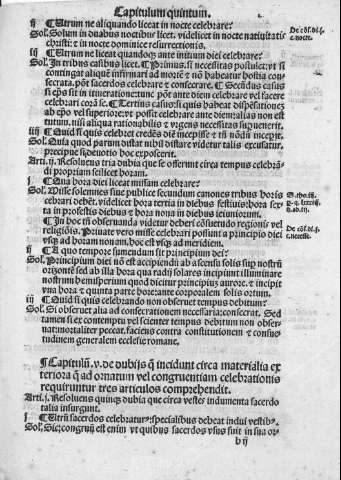 Capitulum quintum.
ij ¶ Utrum ne aliquando liceat in nocte celebrare?
Sol. Solum in duabus noctibus licet. videlicet in nocte natiuitatis
christi: ⁊ in nocte dominice resurrectionis.
De cōs. di. j.
c. nocte.
iij ¶ Utrum ne liceat quandoq̃ ante initium diei celebrare?
Sol. In tribus casibus licet. ¶ Primus. si necessitas postulet: vt si
contingat aliquē infirmari ad mortē ⁊ nō habeatur hostia con
secrata. pōt sacerdos celebrare ⁊ consecrare. ¶ Secūdus casus
si ep̄s sit in itineratione: tunc pōt ante diem celebrare vel facere
celebrari corā se. ¶ Tertius casus: si quis habeat dispēsationē
ab ep̄o vel superiore: vt possit celebrare ante diem: alias non est
tutum. nisi aliqua rationabilis ⁊ vrgens necessitas superuenerit.
iiij ¶ Quid si quis celebret credēs diē incepisse ⁊ tn̄ nōdū incepit.
Sol. Quia quod parum distat nihil distare videtur talis excusatur.
precipue si deuotio hoc exposcerit.
Arti. ij. Resoluens tria dubia que se offerunt circa tempus celebrā
di propriam scilicet horam.
j ¶ Qua hora diei liceat missam celebrare?
Sol. Misse solemnes siue publice secundum canones tribus horis
celebrari debēt. videlicet hora tertia in diebus festiuis: hora sex
ta in profestis diebus ⁊ hora nona in diebus ieiuniorum.
In hoc tn̄ obseruanda videtur deberi cōsuetudo regionis vel
religiōis. Priuate vero misse celebrari possunt a principio diei
vsq̃ ad horam nonam. hoc est vsq̃ ad meridiem.
De cōs. di. j.
c. necesse.
ij ¶ A quo tempore sumendum sit principium diei?
Sol. Principium diei nō est accipiendū ab ascensu solis sup nostrū
orizontē sed ab illa hora qua radij solares incipiunt illuminare
nostrum hemisperium quod dicitur principius aurore. ⁊ incipit
vna hora ⁊ quinta parte hore: ante corporalem solis ortum.
iij ¶ Quid si quis celebrando non obseruet tempus debitum?
Sol. Si obseruet alia ad consecrationem necessaria: consecrat. Sed
tamen si ex contemptu vel scienter tempus debitum non obser
uat: mortaliter peccat. faciens contra constitutionem ⁊ consue
tudinem generalem ecclesie romane.
¶ Capitulū. v. de dubijs q̄ incidunt circa materialia ex
teriora q̄ ad ornatum vel congruentiam celebrationis
requiruntur tres articulos comprehendit.
Arti. j. Resoluens quinq̃ dubia que circa vestes indumenta sacerdo
talia insurgunt.
j ¶ Utrū sacerdos celebratur specialibus debeat indui vestibꝰ.
Sol. Sic: congruū est enim vt quibus sacerdos vsus suit in sua or-
b ij